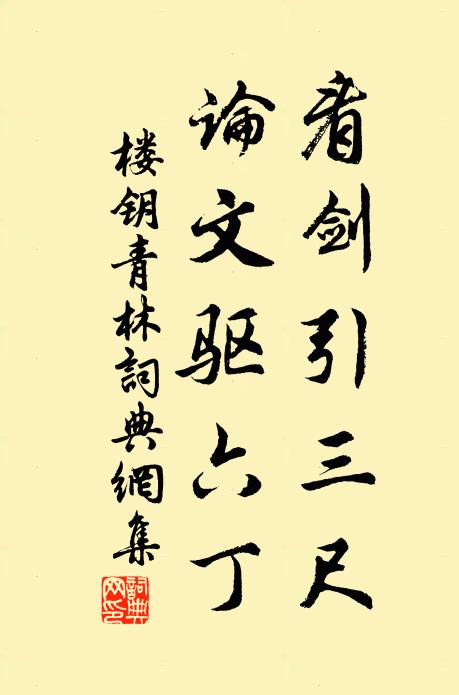 看剑引三尺
论文驱六丁
楼钥青林词典网集
词典网印